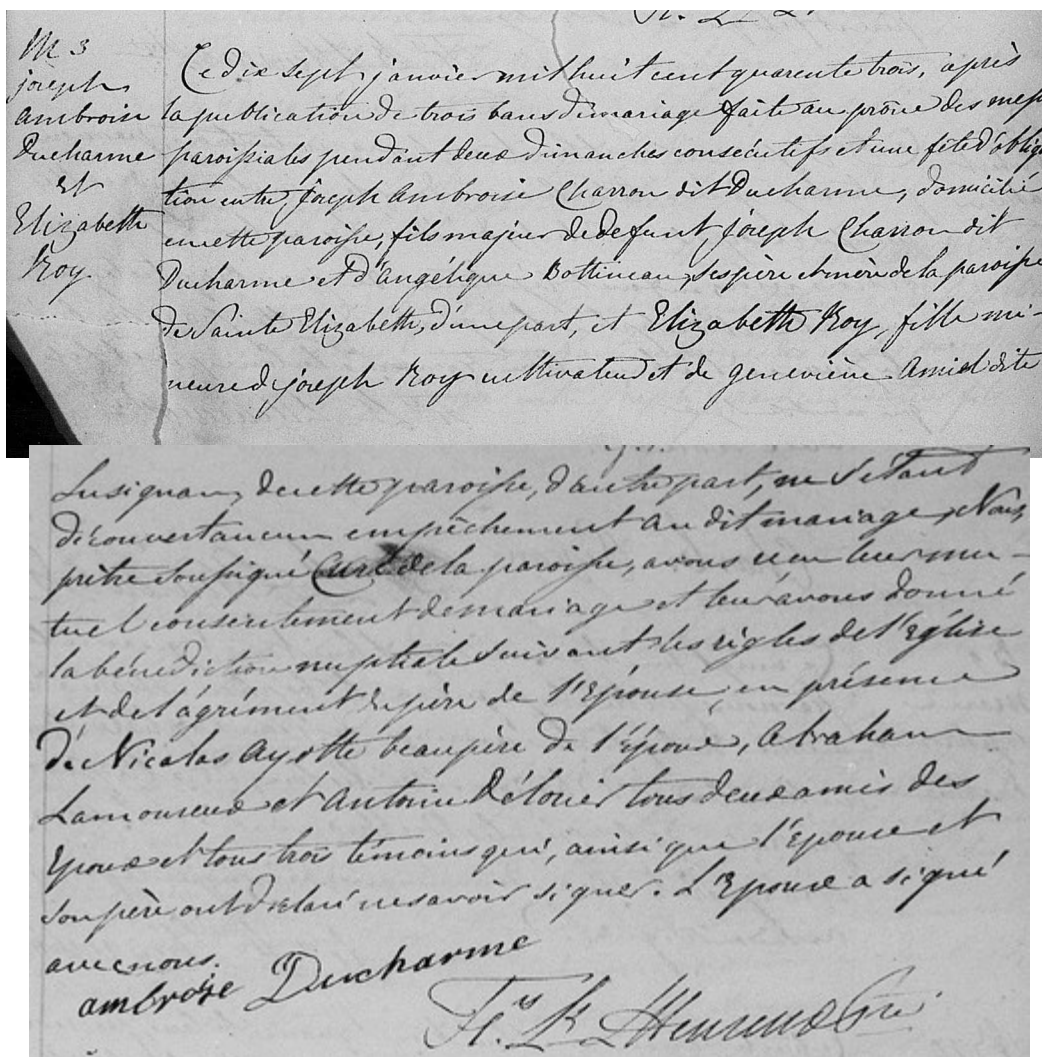 M 3
joseph
Ambroise
Ducharme
Et
Elizabeth
Roy.
Ce dix sept janvier mil huit cent quarente trois, après
la publication de trois bans de mariage faite au prône des mes
paroissiales pendant deux dimanches consécutifs et une fête d'obliga
tion entre Joseph Ambroise Charron dit Ducharme, domicilié
en cette paroisse, fils majeur de defunt Joseph Charron dit
Ducharme et d'Angélique Bottineau, ses père et mère de la paroisse
de Sainte Elizabeth, d'une part, et Elizabeth Roy, fille mi-
neure de joseph Roy cultivateur et de geneviève Amiot dite
Lusignan, de cette paroisse, d'autre part, ne s'étant
découvert aucun empêchement au dit mariage, Nous,
prêtre soussigné Curé de la paroisse, avons reçu leur mu-
tuel consentement de mariage et leur avons donné
la bénédiction nuptiale suivant les règles de l'Eglise
et de l'agrément du père de l'Epouse, en présence
de Nicolas Ayotte beaupère de l'époux, Abraham
Lamoureux et Antoine Délorier tous deux amis des
Epoux et tous trois témoins qui, ainsi que l'Epouse et
son père ont déclaré ne savoir signer. L'Epoux a signé
avec nous.
ambroise Ducharme
Frs. L. Heureux Ptre